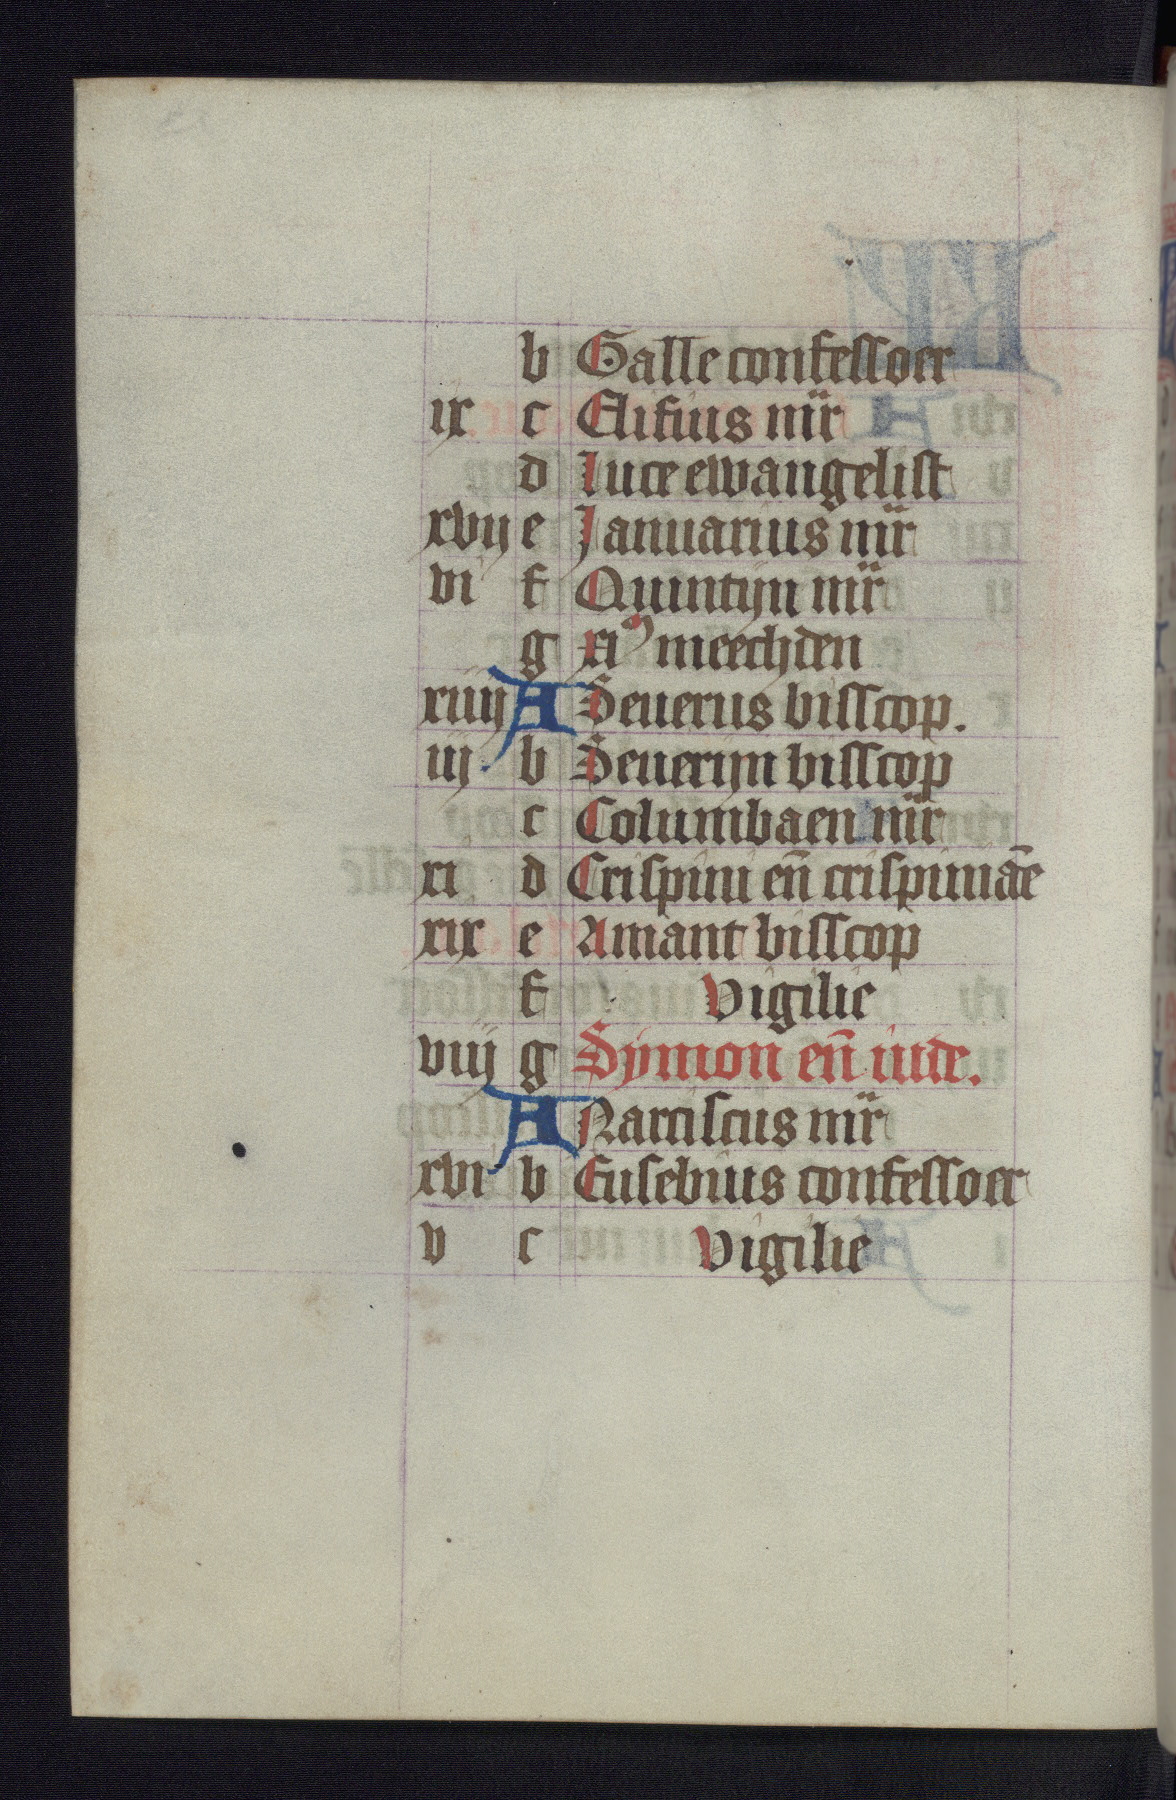 b Galle confessoer
ix c Elifius mr̄
d Luce ewangelist
xvij e Januarius mr̄
vi f Quintijn mr̄
g xiᵐ meechden
xiiij A Seuerus bisscop.
iij b Seuerijn bisscop
c Columbaen mr̄
xi d Crispini en̄ crispiniāe
xix e Amant bisscop
f Vigilie
viij g Symon en̄ iude.
A Narciscus mr̄
xvi b Eusebius confessoer
v c Vigilie